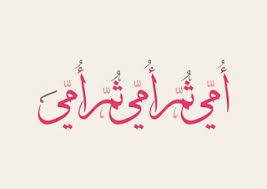 أُمّي ثُمّ أُمّي ثُمّ أُمّي